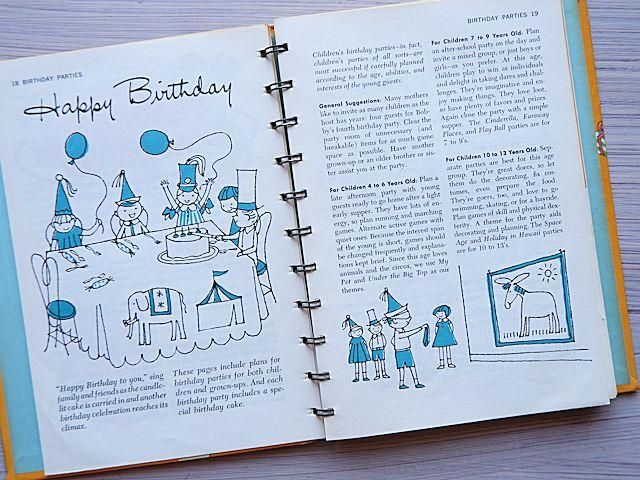 18 BIRTHDAY PARTIES
Happy Birthday
"Happy Birthday to you," sing
family and friends as the candle-
lit cake is carried in and another
birthday celebration reaches its
climax.
These pages include plans for
birthday parties for both chil-
dren and grown-ups. And each
birthday party includes a spe-
cial birthday cake.
BIRTHDAY PARTIES 19
Children's birthday parties—in fact,
children's parties of all sorts—are
most successful if carefully planned
according to the age, abilities, and
interests of the young guests.
General Suggestions: Many mothers
like to invite as many children as the
host has years: four guests for Bob-
by's fourth birthday party. Clear the
party room of unnecessary (and
breakable) items for as much game
space as possible. Have another
grown-up or an older brother or sis-
ter assist you at the party.
For Children 4 to 6 Years Old: Plan a
late afternoon party with young
guests ready to go home after a light
early supper. They have lots of en-
ergy, so plan running and marching
games. Alternate active games with
quiet ones. Because the interest span
of the young is short, games should
be changed frequently and explana-
tions kept brief. Since this age loves
animals and the circus, we use My
Pet and Under the Big Top as our
themes.
For Children 7 to 9 Years Old: Plan
an after-school party on the day and
invite a mixed group, or just boys or
girls—as you prefer. At this age,
children play to win as individuals
and delight in taking dares and chal-
lenges. They're imaginative and en-
joy making things. They love loot,
so have plenty of favors and prizes.
Again close the party with a simple
supper. The Cinderella, Faraway
Places, and Play Ball parties are for
7 to 9's.
For Children 10 to 13 Years Old: Sep-
arate parties are best for this age
group. They're great doers, so let
them do the decorating, fix cos-
tumes, even prepare the food.
They're goers, too, and love to go
swimming, skating, or for a hayride.
Plan games of skill and physical dex-
terity. A theme for the party aids
decorating and planning. The Space
Age and Holiday in Hawaii parties
are for 10 to 13's.